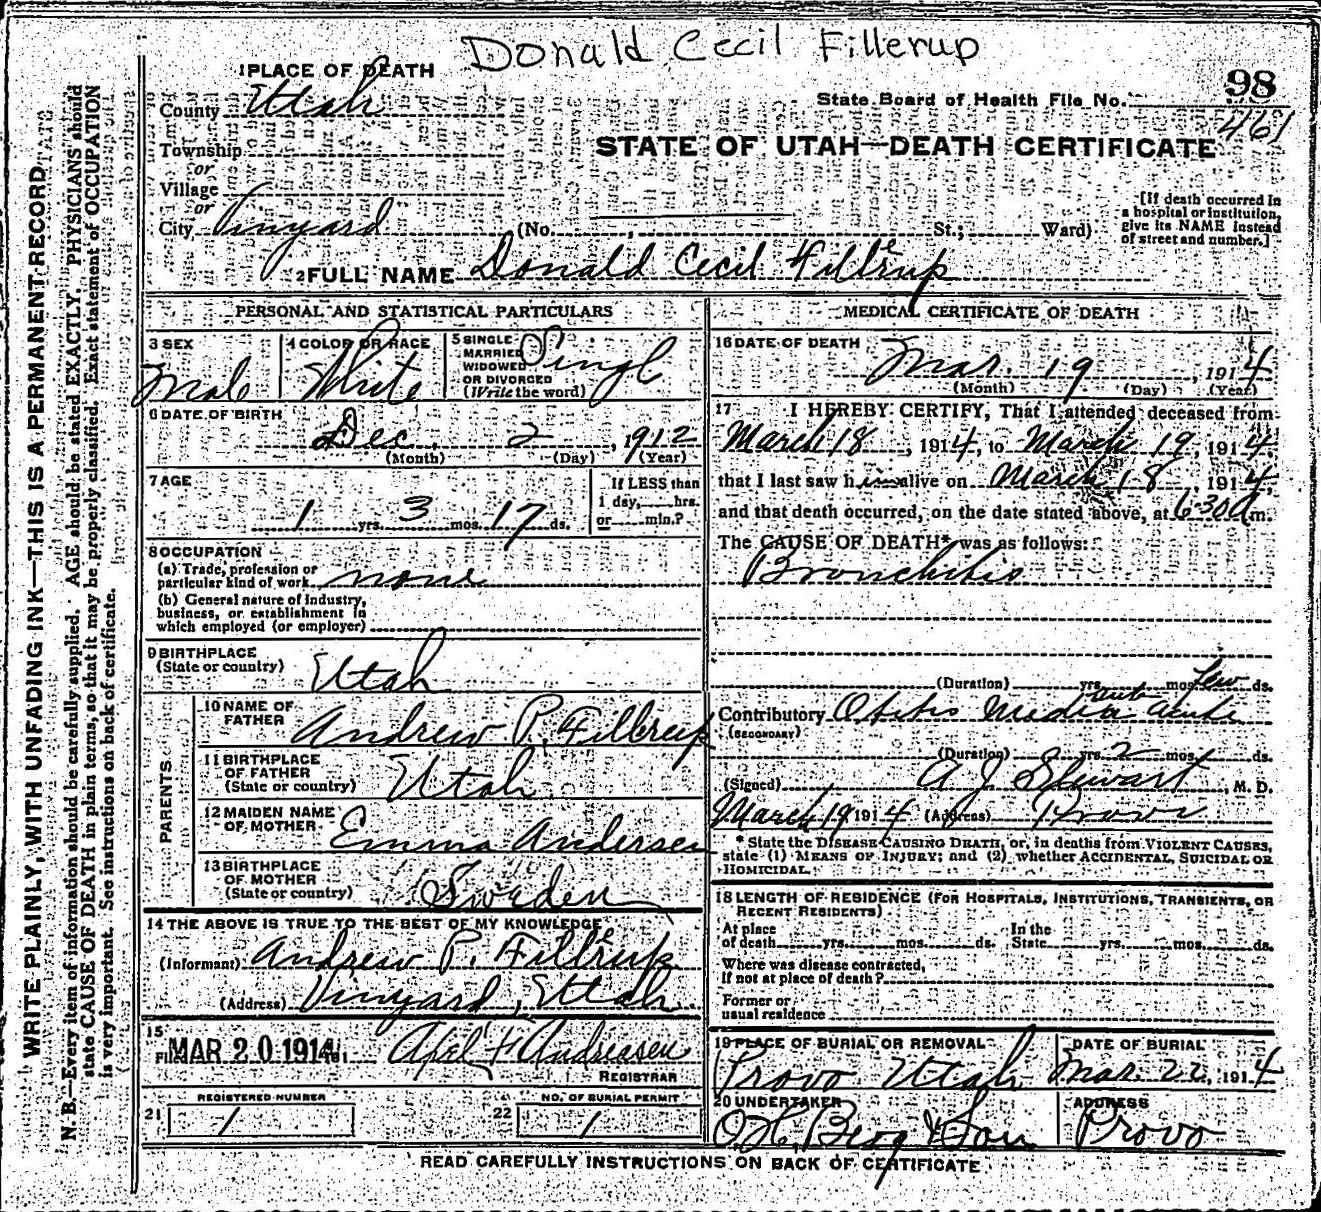 Donald Cecil Fillerup
1 PLACE OF DEATH
98
County Utah
State Board of Health File No.
461
Township
STATE OF UTAH—DEATH CERTIFICATE
or
Village
or
City Vinyard (No. , St.; Ward)
[If death occurred in a hospital or institution, give its NAME instead of street and number.]
2 FULL NAME Donald Cecil Fillerup
PERSONAL AND STATISTICAL PARTICULARS
3 SEX Male
4 COLOR OR RACE White
5 SINGLE MARRIED WIDOWED OR DIVORCED (Write the word) Singl
6 DATE OF BIRTH
Dec. 2, 1912
(Month) (Day) (Year)
7 AGE
1 yrs. 3 mos. 17 ds.
If LESS than 1 day, hrs. or min.?
8 OCCUPATION
(a) Trade, profession or
particular kind of work none
(b) General nature of industry,
business, or establishment in
which employed (or employer)
9 BIRTHPLACE
(State or country) Utah
PARENTS
10 NAME OF FATHER Andrew P. Fillrup
11 BIRTHPLACE OF FATHER (State or country) Utah
12 MAIDEN NAME OF MOTHER Emma Andersen
13 BIRTHPLACE OF MOTHER (State or country) Sweden
14 THE ABOVE IS TRUE TO THE BEST OF MY KNOWLEDGE
(Informant) Andrew P. Fillerup
(Address) Vinyard, Utah
15
MAR 20 1914 Axel F Andreasen
REGISTRAR
REGISTERED NUMBER
21 1
NO. OF BURIAL PERMIT
22 1
MEDICAL CERTIFICATE OF DEATH
16 DATE OF DEATH
Mar. 19, 1914
(Month) (Day) (Year)
17 I HEREBY CERTIFY, That I attended deceased from
March 18, 1914, to March 19, 1914,
that I last saw him alive on March 18, 1914,
and that death occurred, on the date stated above, at 6:30 a m.
The CAUSE OF DEATH* was as follows:
Bronchitis
(Duration) yrs. mos. few ds.
Contributory Otitis Media sub acute
(SECONDARY)
(Duration) yrs. 2 mos. ds.
(Signed) A J. Stewart, M. D.
March 19 1914 (Address) Provo
* State the DISEASE CAUSING DEATH, or, in deaths from VIOLENT CAUSES,
state (1) MEANS OF INJURY; and (2) whether ACCIDENTAL, SUICIDAL OR
HOMICIDAL.
18 LENGTH OF RESIDENCE (FOR HOSPITALS, INSTITUTIONS, TRANSIENTS, OR
RECENT RESIDENTS)
At place of death yrs. mos. ds. In the State yrs. mos. ds.
Where was disease contracted,
If not at place of death?
Former or
usual residence
19 PLACE OF BURIAL OR REMOVAL
Provo Utah
DATE OF BURIAL
Mar. 22, 1914
20 UNDERTAKER
O H. Berg & Son
ADDRESS
Provo
READ CAREFULLY INSTRUCTIONS ON BACK OF CERTIFICATE
WRITE PLAINLY, WITH UNFADING INK—THIS IS A PERMANENT RECORD
N. B.—Every item of information should be carefully supplied. AGE should be stated EXACTLY. PHYSICIANS should
state CAUSE OF DEATH in plain terms, so that it may be properly classified. Exact statement of OCCUPATION
is very important. See instructions on back of certificate.